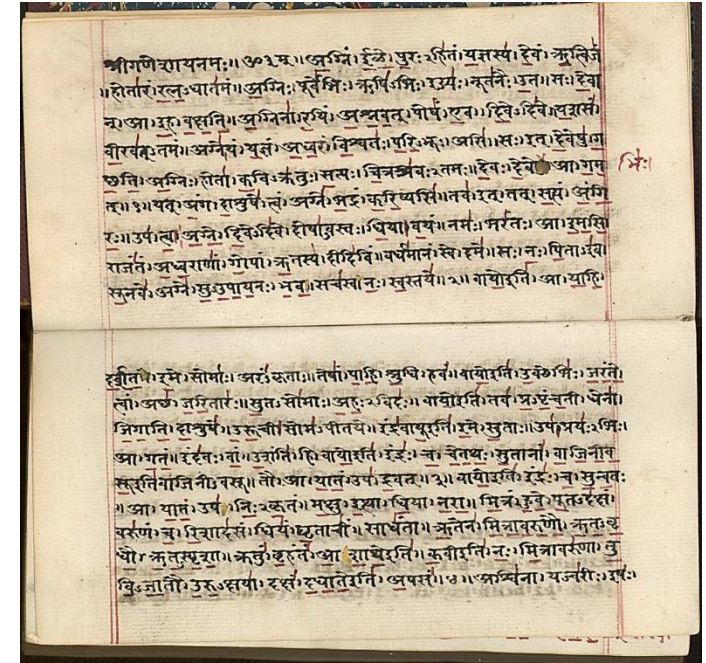 श्रीगणेशायनमः॥ॐ३म्॥अग्निं।ईळे।पुरःऽहितं।यज्ञस्य।देवं।ऋत्विजं
॥होतारं।रत्नऽधातमं॥अग्निः।पूर्वेभिः।ऋषिऽभिः।ईड्यः।नूतनैः।उत॥सः।देवा
न्।आ।इह।वक्षति॥अग्निना।रयिं।अश्नवत्।पोषं।एव।दिवेऽदिवे॥यशसं
वीरवत्ऽतमं॥अग्ने।यं।यज्ञं।अध्वरं।विश्वतः।परिऽभूः।असि॥सः।इत्।देवेषु।ग
च्छति।अग्निः।होता।कविऽक्रतुः।सत्यः।चित्रश्रवःऽतमः॥देवः।देवे।आ।गम
भिः।
त्॥१॥यत्।अंग।दाशुषे।त्वं।अग्ने।भद्रं।करिष्यसि॥तव।इत्।तत्।सत्यं।अंगि
रः॥उप।त्वा।अग्ने।दिवेऽदिवे।दोषाऽवस्तः।धिया।वयं॥नमः।भरंतः।आ।इमसि
राजंतं।अध्वराणां।गोपां।ऋतस्य।दीदिविं॥वर्धमानं।स्वे।दमे॥सः।नः।पिताऽइव
सूनवे।अग्ने।सुऽउपायनः।भव॥सचस्व।नः।स्वस्तये॥२॥वायोइति।आ।याहि
दर्शत।इमे।सोमाः।अरंऽकृताः॥तेषां।पाहि।श्रुधि।हवं॥वायोइति।उक्थेभिः।जरंते
त्वां।अच्छ।जरितारः॥सुतऽसोमाः।अहःऽविदः॥वायोइति।तव।प्रऽपृंचती।धेना
जिगाति।दाशुषे॥उरूची।सोमऽपीतये॥इंद्रवायूइति।इमे।सुताः॥उप।प्रयःऽभिः।
आ।गतं॥इंदवः।वां।उशंति।हि।वायोइति।इंद्रः।च।चेतथः।सुतानां।वाजिनीव
सूइतिवाजिनीऽवसू॥तौ।आ।यातं।उप।द्रवत्॥३॥वायोइति।इंद्रः।च।सुन्वतः
॥आ।यातं।उप।निःऽकृतं॥मक्षु।इत्था।धिया।नरा॥मित्रं।हुवे।पूतऽदक्षं
वरुणं।च।रिशादसं॥धियं।घृताचीं।साधंता॥ऋतेन।मित्रावरुणौ।ऋतऽवृ
धौ।ऋतऽस्पृशा॥क्रतुं।बृहंतं।आशाथेइति॥कवीइति।नः।मित्रावरुणा।तु
विऽजातौ।उरुऽक्षया॥दक्षं।दधातेइति।अपसं॥४॥अश्विना।यज्वरीः।इषः